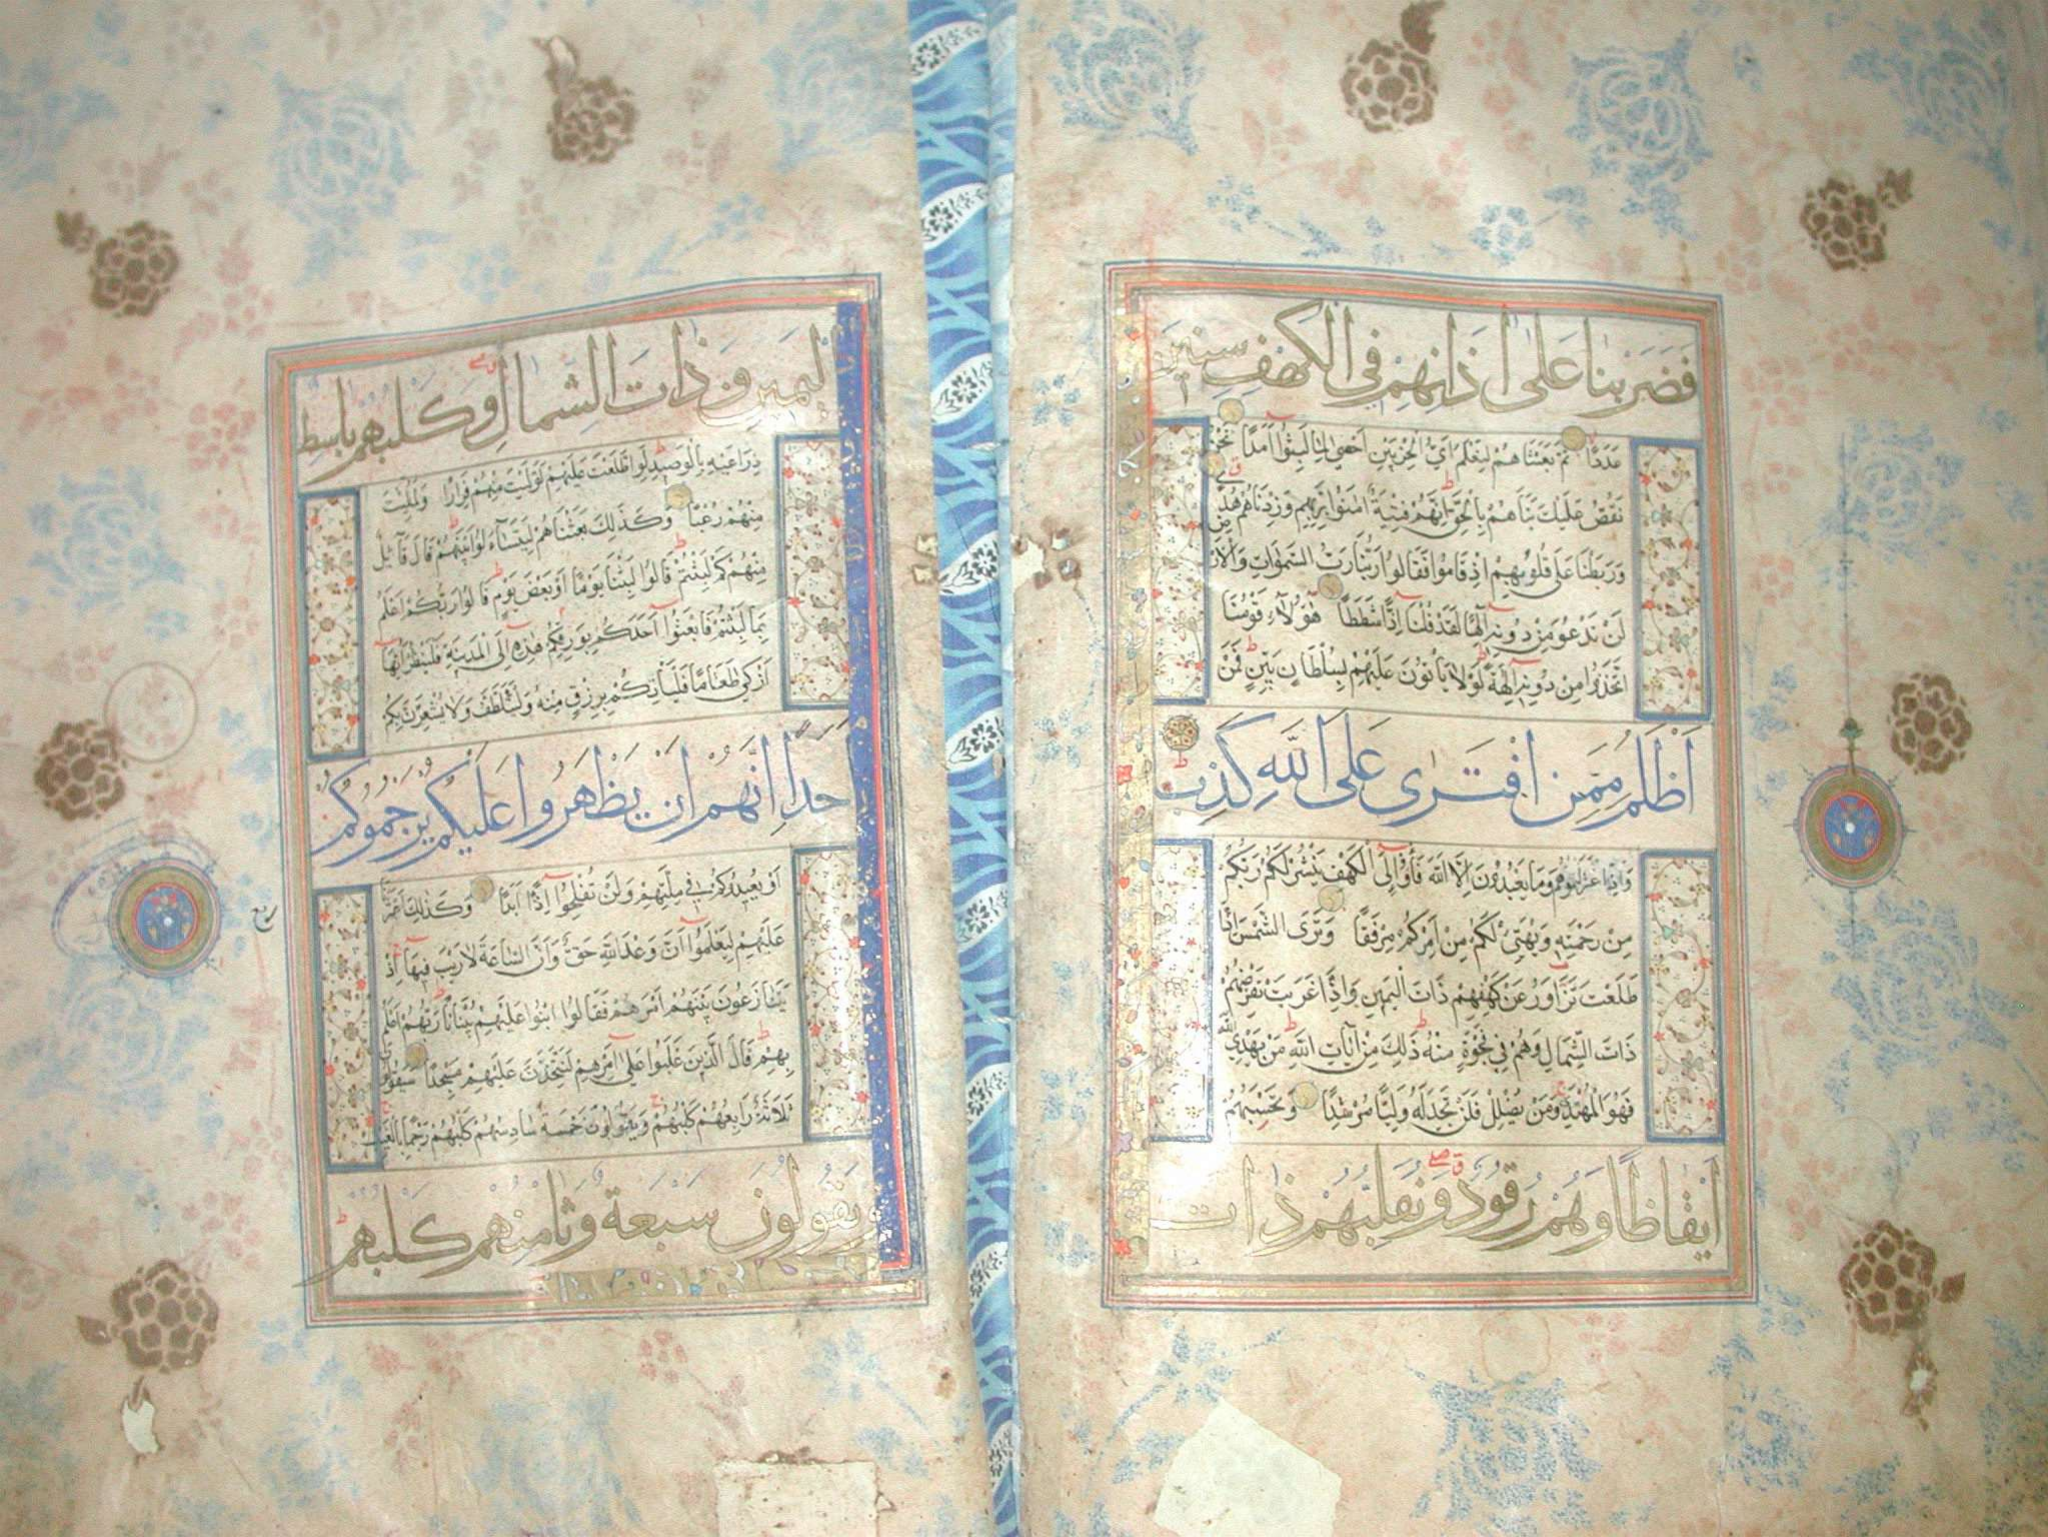 فَضَرَبْنَا عَلَىٰ اٰذَانِهِمْ فِي الْكَهْفِ سِنِينَ
عَدَدًا ثُمَّ بَعَثْنَاهُمْ لِنَعْلَمَ اَيُّ الْحِزْبَيْنِ اَحْصٰى لِمَا لَبِثُوا اَمَدًا نَحْنُ
نَقُصُّ عَلَيْكَ نَبَاَهُمْ بِالْحَقِّ اِنَّهُمْ فِتْيَةٌ اٰمَنُوا بِرَبِّهِمْ وَزِدْنَاهُمْ هُدًى
وَرَبَطْنَا عَلٰى قُلُوبِهِمْ اِذْ قَامُوا فَقَالُوا رَبُّنَا رَبُّ السَّمٰوَاتِ وَالْاَرْضِ
لَنْ نَدْعُوَ مِنْ دُونِهِ اِلٰهًا لَقَدْ قُلْنَا اِذًا شَطَطًا هٰؤُلَاءِ قَوْمُنَا
اتَّخَذُوا مِنْ دُونِهِ اٰلِهَةً لَوْلَا يَاْتُونَ عَلَيْهِمْ بِسُلْطَانٍ بَيِّنٍ فَمَنْ
اَظْلَمُ مِمَّنِ افْتَرٰى عَلَى اللّٰهِ كَذِبًا
وَاِذِ اعْتَزَلْتُمُوهُمْ وَمَا يَعْبُدُونَ اِلَّا اللّٰهَ فَأْوُوا اِلَى الْكَهْفِ يَنْشُرْ لَكُمْ رَبُّكُمْ
مِنْ رَحْمَتِهِ وَيُهَيِّئْ لَكُمْ مِنْ اَمْرِكُمْ مِرْفَقًا وَتَرَى الشَّمْسَ اِذَا
طَلَعَتْ تَزَّاوَرُ عَنْ كَهْفِهِمْ ذَاتَ الْيَمِينِ وَاِذَا غَرَبَتْ تَقْرِضُهُمْ
ذَاتَ الشِّمَالِ وَهُمْ فِي فَجْوَةٍ مِنْهُ ذٰلِكَ مِنْ اٰيَاتِ اللّٰهِ مَنْ يَهْدِي اللّٰهُ
فَهُوَ الْمُهْتَدِ وَمَنْ يُضْلِلْ فَلَنْ تَجِدَ لَهُ وَلِيًّا مُرْشِدًا وَتَحْسَبُهُمْ
اَيْقَاظًا وَهُمْ رُقُودٌ وَنُقَلِّبُهُمْ ذَاتَ
الْيَمِينِ وَذَاتَ الشِّمَالِ وَكَلْبُهُمْ بَاسِطٌ
ذِرَاعَيْهِ بِالْوَصِيدِ لَوِ اطَّلَعْتَ عَلَيْهِمْ لَوَلَّيْتَ مِنْهُمْ فِرَارًا وَلَمُلِئْتَ
مِنْهُمْ رُعْبًا وَكَذٰلِكَ بَعَثْنَاهُمْ لِيَتَسَاءَلُوا بَيْنَهُمْ قَالَ قَائِلٌ
مِنْهُمْ كَمْ لَبِثْتُمْ قَالُوا لَبِثْنَا يَوْمًا اَوْ بَعْضَ يَوْمٍ قَالُوا رَبُّكُمْ اَعْلَمُ
بِمَا لَبِثْتُمْ فَابْعَثُوا اَحَدَكُمْ بِوَرِقِكُمْ هٰذِهِ اِلَى الْمَدِينَةِ فَلْيَنْظُرْ اَيُّهَا
اَزْكٰى طَعَامًا فَلْيَاْتِكُمْ بِرِزْقٍ مِنْهُ وَلْيَتَلَطَّفْ وَلَا يُشْعِرَنَّ بِكُمْ
اَحَدًا اِنَّهُمْ اِنْ يَظْهَرُوا عَلَيْكُمْ يَرْجُمُوكُمْ
اَوْ يُعِيدُوكُمْ فِي مِلَّتِهِمْ وَلَنْ تُفْلِحُوا اِذًا اَبَدًا وَكَذٰلِكَ اَعْثَرْنَا
عَلَيْهِمْ لِيَعْلَمُوا اَنَّ وَعْدَ اللّٰهِ حَقٌّ وَاَنَّ السَّاعَةَ لَا رَيْبَ فِيهَا اِذْ
يَتَنَازَعُونَ بَيْنَهُمْ اَمْرَهُمْ فَقَالُوا ابْنُوا عَلَيْهِمْ بُنْيَانًا رَبُّهُمْ اَعْلَمُ
بِهِمْ قَالَ الَّذِينَ غَلَبُوا عَلٰى اَمْرِهِمْ لَنَتَّخِذَنَّ عَلَيْهِمْ مَسْجِدًا سَيَقُولُونَ
ثَلَاثَةٌ رَابِعُهُمْ كَلْبُهُمْ وَيَقُولُونَ خَمْسَةٌ سَادِسُهُمْ كَلْبُهُمْ رَجْمًا بِالْغَيْبِ
وَيَقُولُونَ سَبْعَةٌ وَثَامِنُهُمْ كَلْبُهُمْ